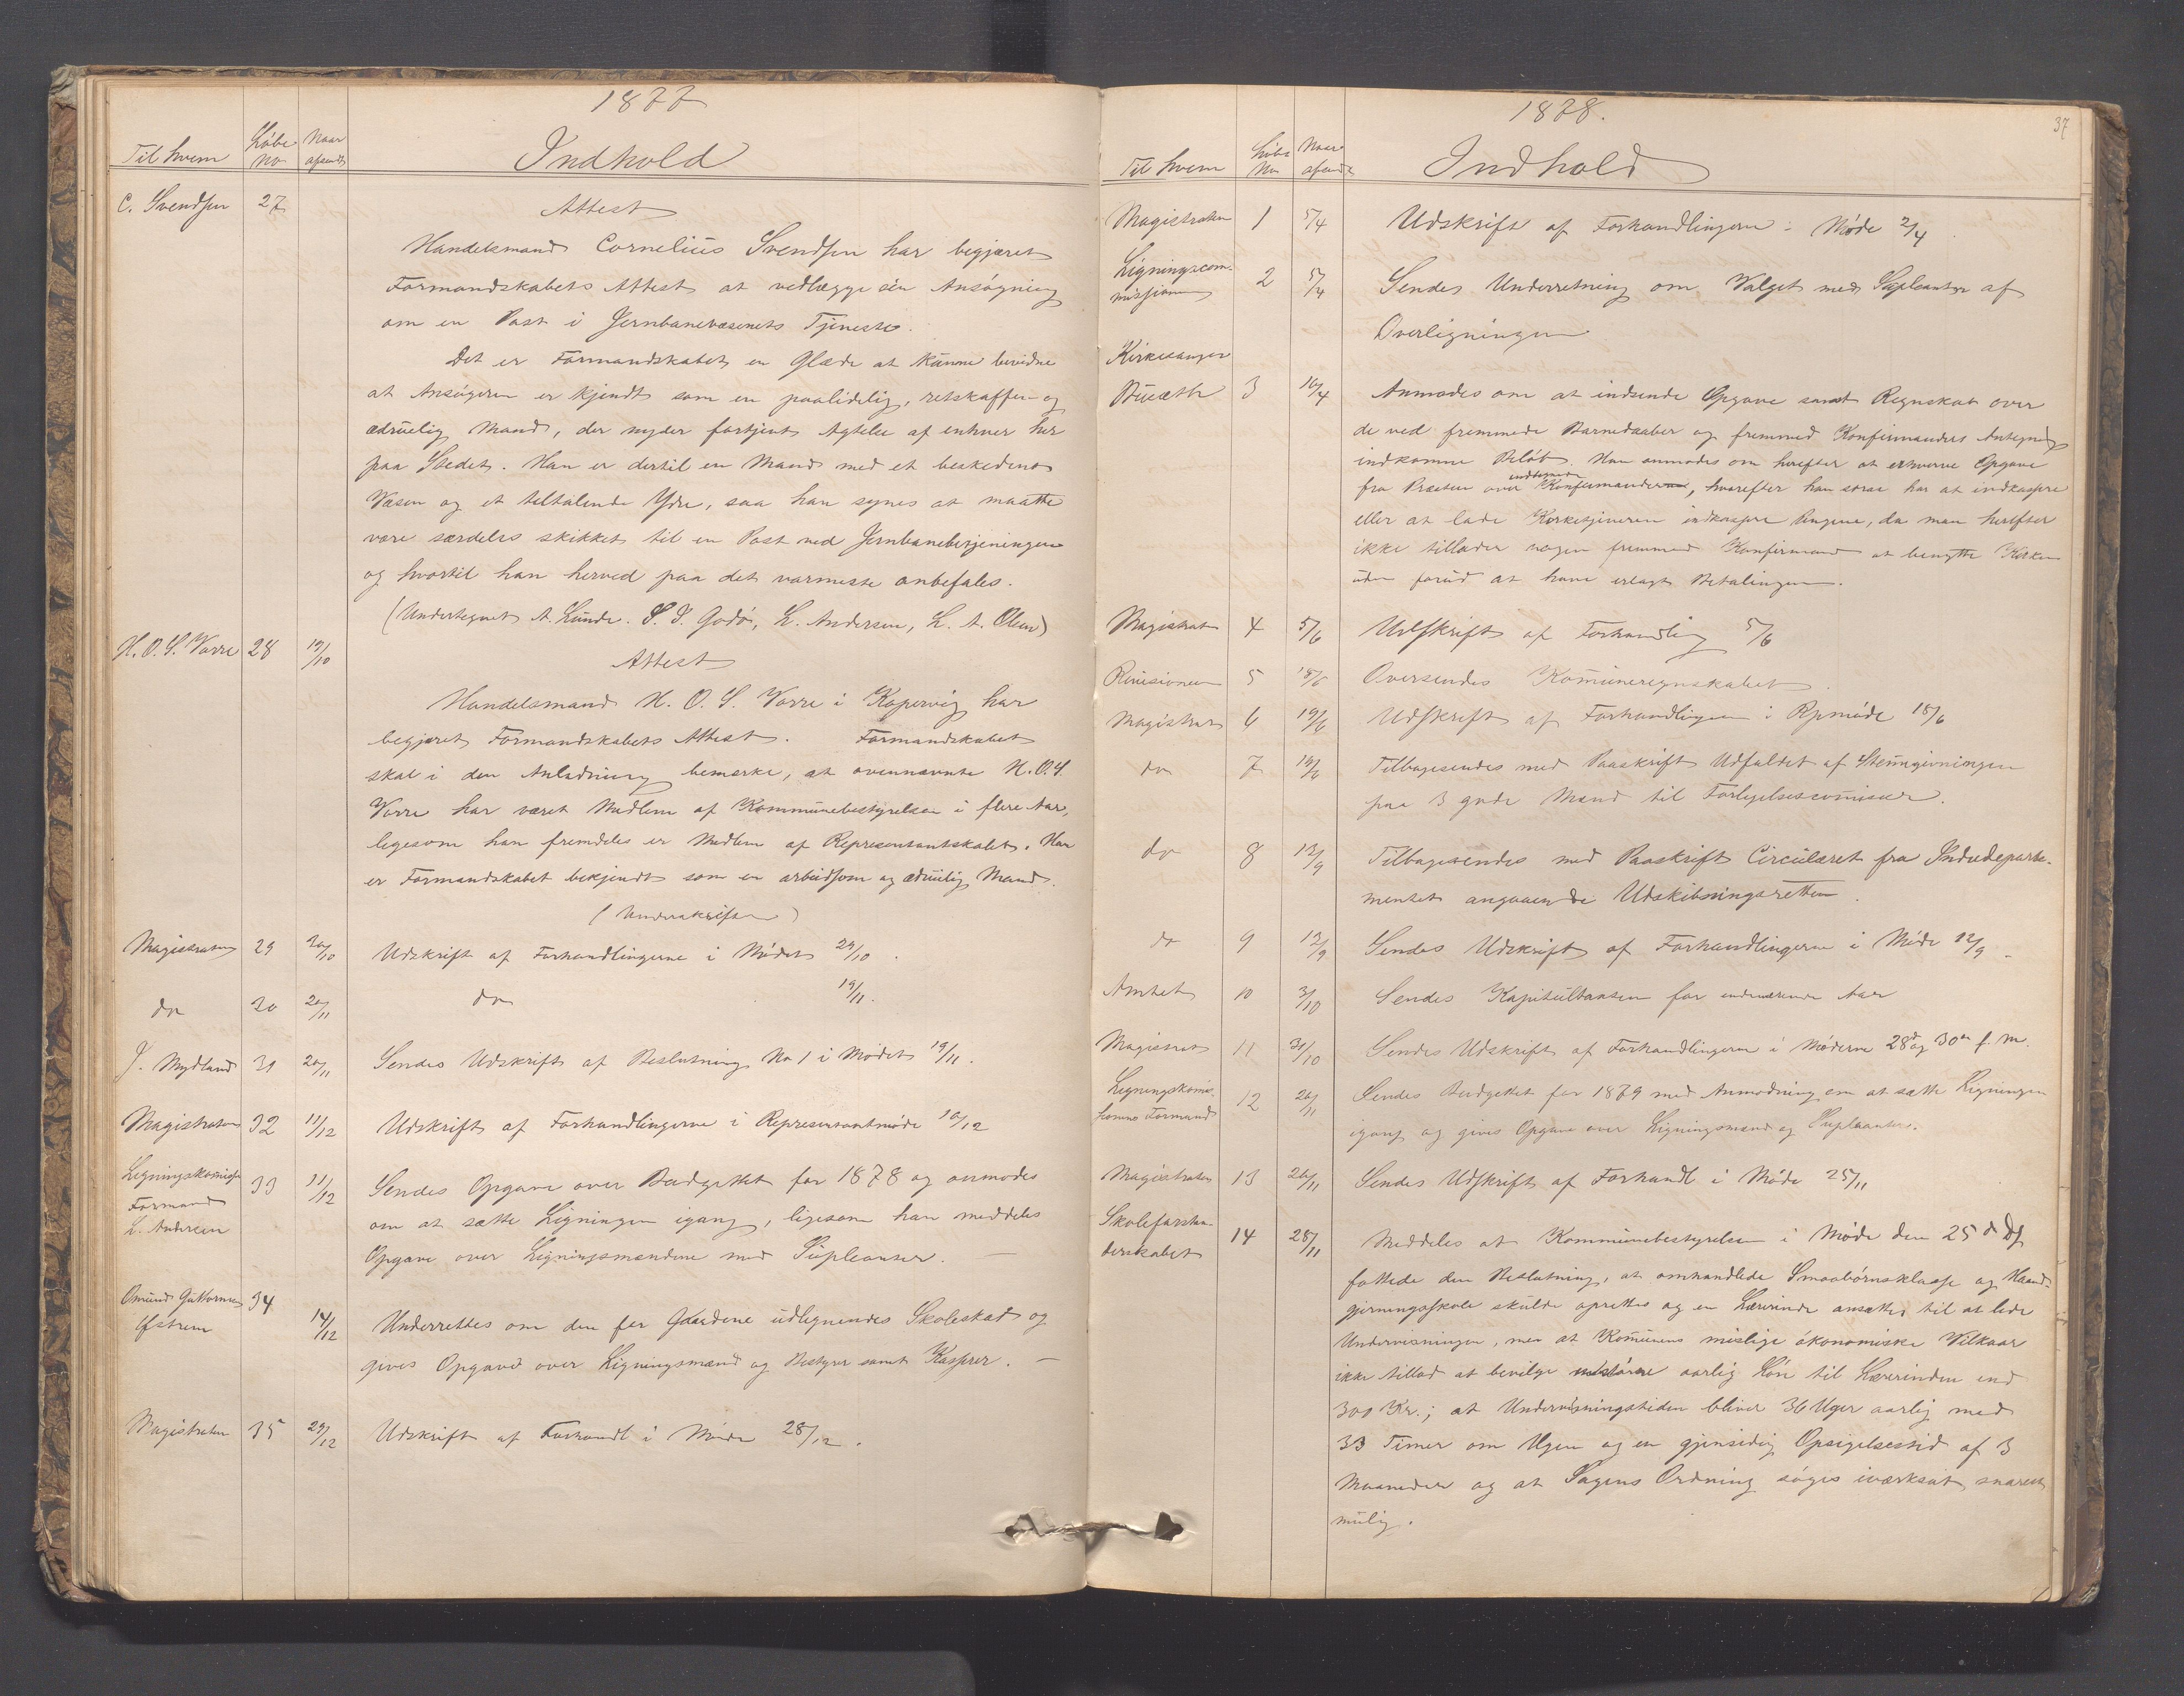 1877
Til hvem Løbe No Naar afsendt Indhold
C. Svendsen 27 Attest
Handelsmand Cornelius Svendsen har begjæret
Formandskabets Attest at vedlægge sin Ansøgning
om en Post i Jernbanevæsenets Tjeneste.
Det er Formandskabet en Glæde at kunne bevidne
at Ansøgeren er kjendt som en paalidelig, retskaffen og
ædruelig Mand, der nyder fortjent Agtelse af enhver her
paa Stedet. Han er dertil en Mand med et beskedent
Væsen og et tiltalende Ydre, saa han synes at maatte
være særdeles skikket til en Post ved Jernbanebetjeningen
og hvortil han herved paa det varmeste anbefales.
(Undertegnet A. Lunde. S. S. Godø, L. Andersen, L. A. Olsen)
H. O. S. Vorre 28 19/10 Attest
Handelsmand H. O. S. Vorre i Kopervig har
begjæret Formandskabets Attest. Formandskabet
skal i den Anledning bemærke, at ovennævnte H. O. S.
Vorre har været Medlem af Kommunebestyrelsen i flere Aar,
ligesom han fremdeles er Medlem af Representantskabet. Han
er Formandskabet bekjendt som en arbeidsom og ædruelig Mand.
(Underskrifter)
Magistraten 29 30/10 Udskrift af Forhandlingerne i Mødet 29/10.
do 30 20/11 do 19/11.
J. Mydland 31 20/11 Sendes Udskrift af Beslutning No 1 i Mødet 19/11.
Magistraten 32 11/12 Udskrift af Forhandlingerne i Representantmøde 10/12
Ligningskomiss 33 11/12 Sendes Opgave over Budgettet for 1878 og anmodes
Formand om at sætte Ligningen igang, ligesom han meddeles
L. Andersen Opgave over Ligningsmændene med Supleanter.
Omund Guttorms 34
14/12 Underrettes om den for Gaardene udlignendes Skoleskat og
gives Opgave over Ligningsmænd og Bestyrer samt Kasserer.
Magistraten 35 29/12 Udskrift af Forhandl i Møde 28/12.
1878.
37
Til hvem Løbe No Naar afsendt Indhold
Magistraten 1 5/4 Udskrift af Forhandlingerne i Møde 2/4.
Ligningscommissionen 2 5/4 Sendes Underretning om Valget med Supleanter af
Overligningen
Kirkesanger
3 10/4 Anmodes om at indsende Opgave samt Regnskab over
de ved fremmede Barnedaaber og fremmed Konfirmanders Antegning
indkomne Beløb. Han anmodes om herefter at erhverve Opgave
fra Præsten over Konfirmanderne, hvorefter han strax har at indkassere
eller at lade Kirketjeneren indkassere Pengene, da man herefter
ikke tillader nogen fremmed Konfirmand at benytte Kirken
uden forud at have erlagt Betalingen.
Magistrat 4 5/6 Udskrift af Forhandling 5/6
Revisionen 5 18/6 Oversendes Komuneregnskabet.
Magistrat 6 19/6 Udskrift af Forhandlingen i Rpmøde 18/6
do 7 19/6 Tilbagesendes med Paaskrift Udfaldet af Stemgivningen
paa 3 gode Mænd til Forligelsescomissær.
do 8 13/9 Tilbagesendes med Paaskrift Circulæret fra Indredeparte-
mentet angaaende Udskibningsretten.
do 9 13/9 Sendes Udskrift af Forhandlingerne i Møde 12/9
Amtet 10 3/10 Sendes Kapitultaxten for indeværende Aar
Magistrat 11 31/10 Sendes Udskrift af Forhandlingerne i Møderne 28d og 30te f. m.
Ligningskomis- 12 26/11 Sendes Budgettet for 1879 med Anmodning om at sætte Ligningen
sionens Formand igang og gives Opgave over Ligningsmænd og Supleanter.
Magistraten 13 26/11 Sendes Udskrift af Forhandl i Møde 25/11
Skoleforstan- 14 28/11 Meddeles at Kommunebestyrelsen i Møde den 25d ds
derskabet fattede den Beslutning, at omhandlede Smaabørnsklasse og Haand-
gjerningsskole skulde oprettes og en Lærerinde ansættes til at lede
Undervisningen, men at Komunens mislige økonomiske Vilkaar
ikke tillod at bevilge større aarlig Løn til Lærerinden end
300 Kr.; at Undervisningstiden bliver 36 Uger aarlig med
33 Timer om Ugen og en gjensidig Opsigelsestid af 3
Maaneder og at Sagens Ordning søges iværksat snarest
mulig.